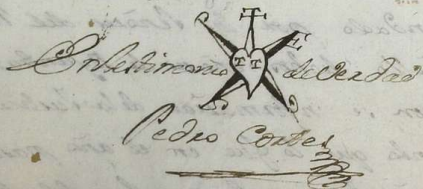 En testimonio de verdad
Pedro Cortes